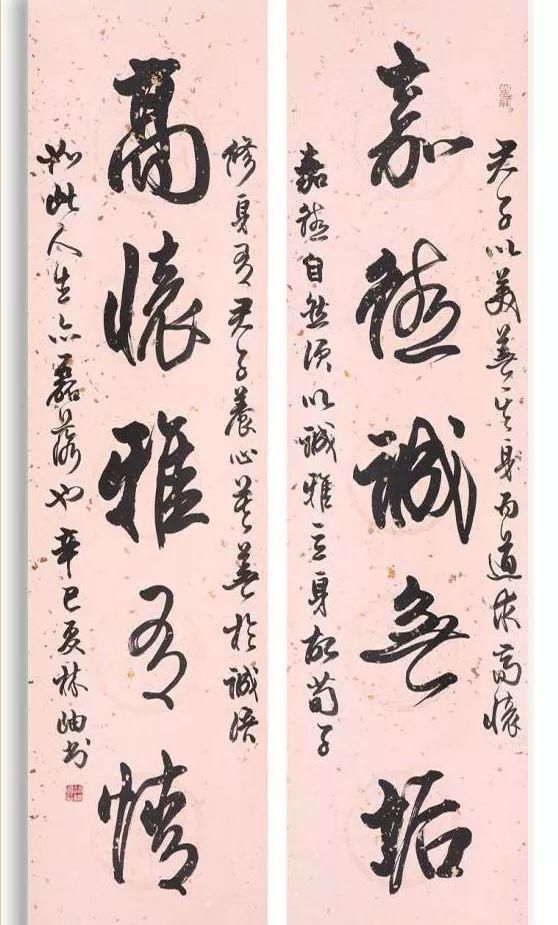 嘉德誠無垢
高懷雅有情
君子以美善其身而道求高懷
嘉德自然須以誠雅立身故荀子
修身有君子養心莫善於誠語
如此人生亦磊落也辛巳夏林岫書